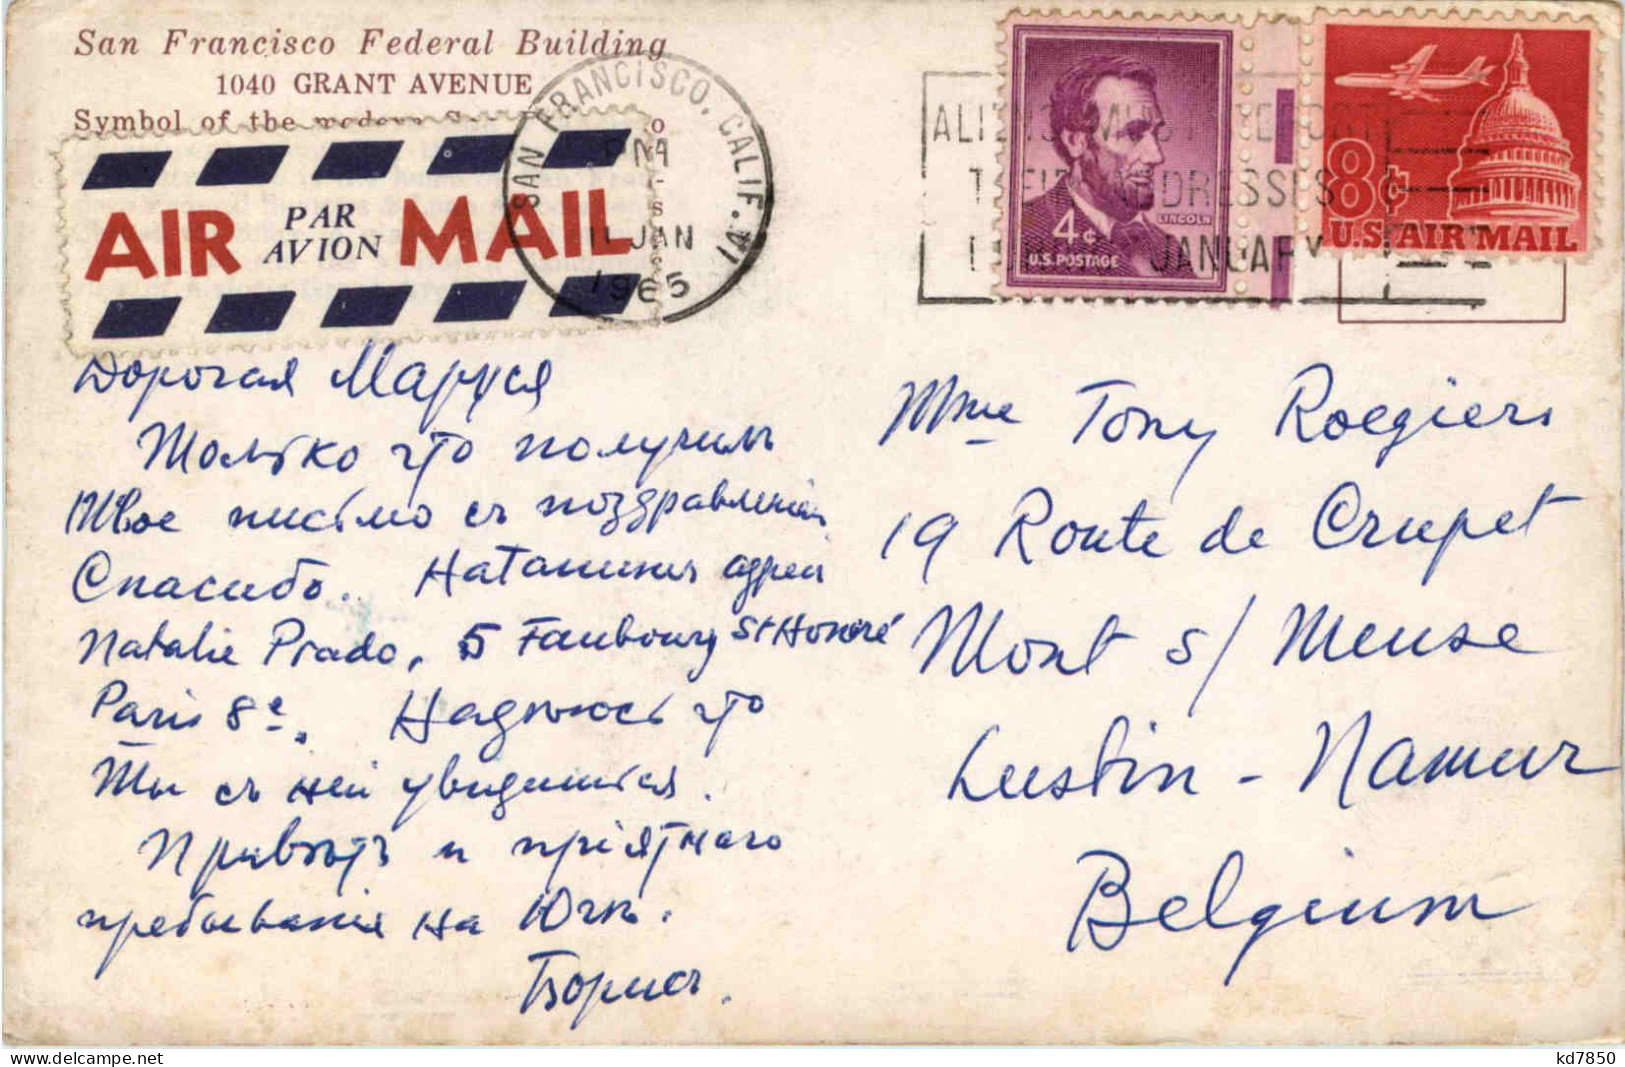 San Francisco Federal Building
1040 GRANT AVENUE
Symbol of the modern
AIR PAR AVION MAIL
SAN FRANCISCO, CALIF. 14
PM
11 JAN
1965
ALIENS MUST REPORT
THEIR ADDRESSES
DURING JANUARY
4¢ LINCOLN
U.S. POSTAGE
8¢
U.S. AIR MAIL
Дорогая Маруся
Только что получилъ
Твое письмо съ поздравленіем
Спасибо. Наташинъ адрес
Natalie Prado, 5 Faubourg St Honoré
Paris 8e. Надѣюсь что
Ты съ ней увидишься.
Привѣтъ и пріятнаго
пребыванія на Югѣ.
Борисъ.
Mme Tony Roegiers
19 Route de Crupet
Mont s/ Meuse
Lustin - Namur
Belgium
kd7850